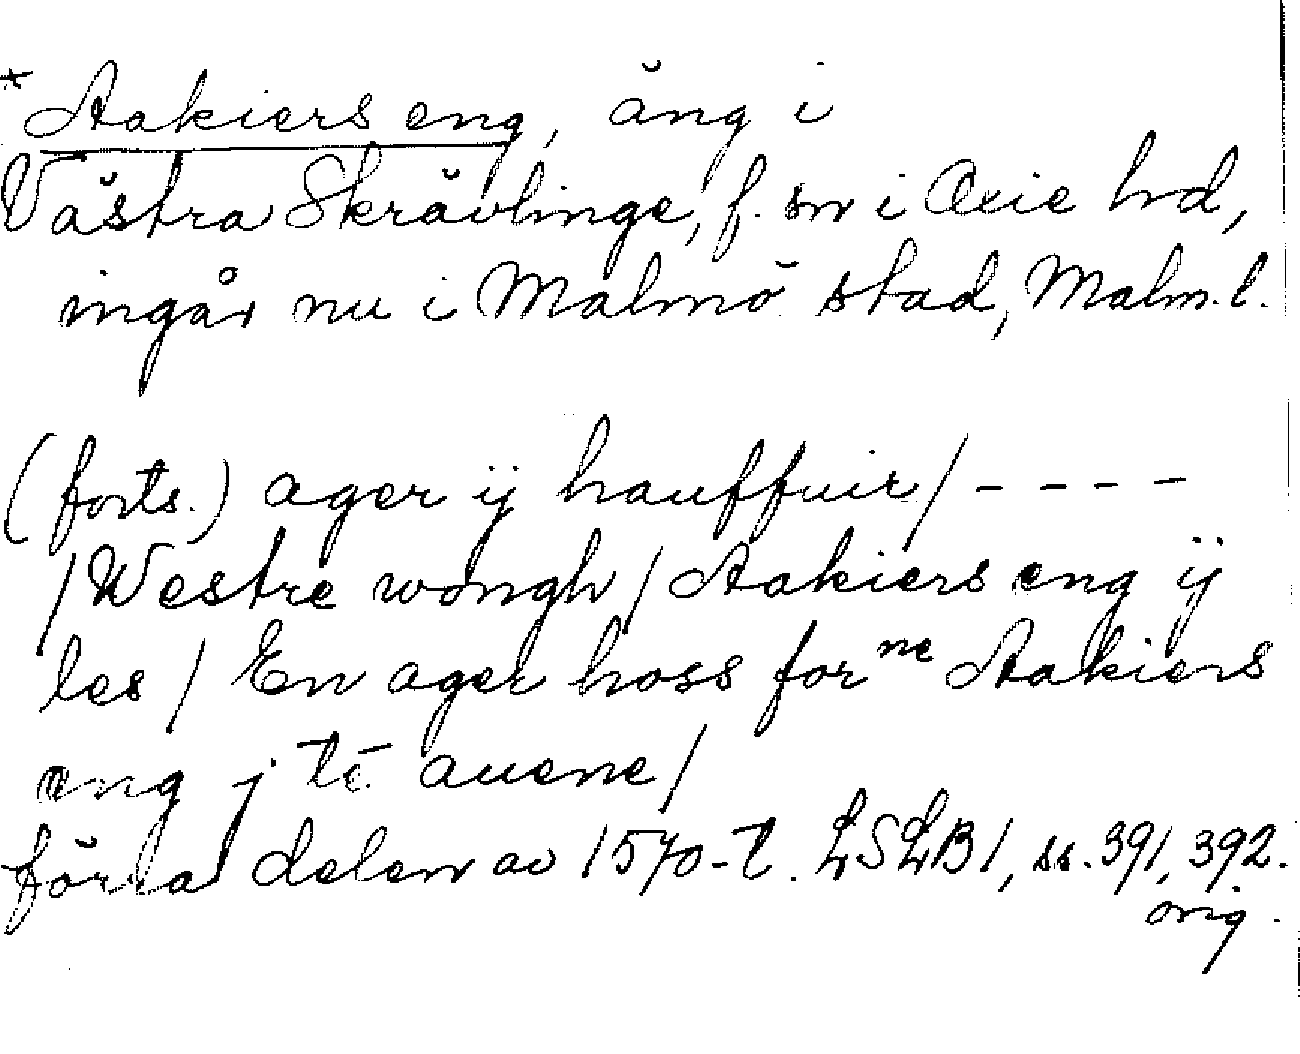 *Aakiers eng, äng i
Västra Skrävlinge, f. sn i Oxie hd,
ingår nu i Malmö stad, Malm. l.
(forts.) ager ij hauffuir/ - - - -
/Westre wongh/ Aakiers eng ij
les / En ager hoss forne Aakiers
eng j tē auene/
förra delen av 1570-t. LSLB1, ss. 391, 392.
orig.